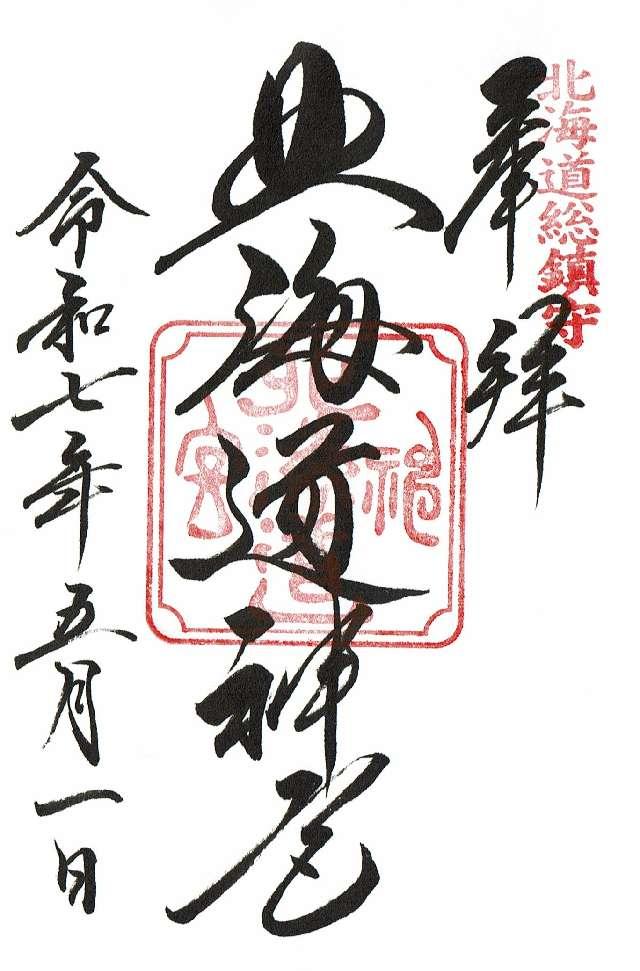 北海道総鎮守
奉拝
北海道神宮
北海道
神
宮
令和七年五月一日